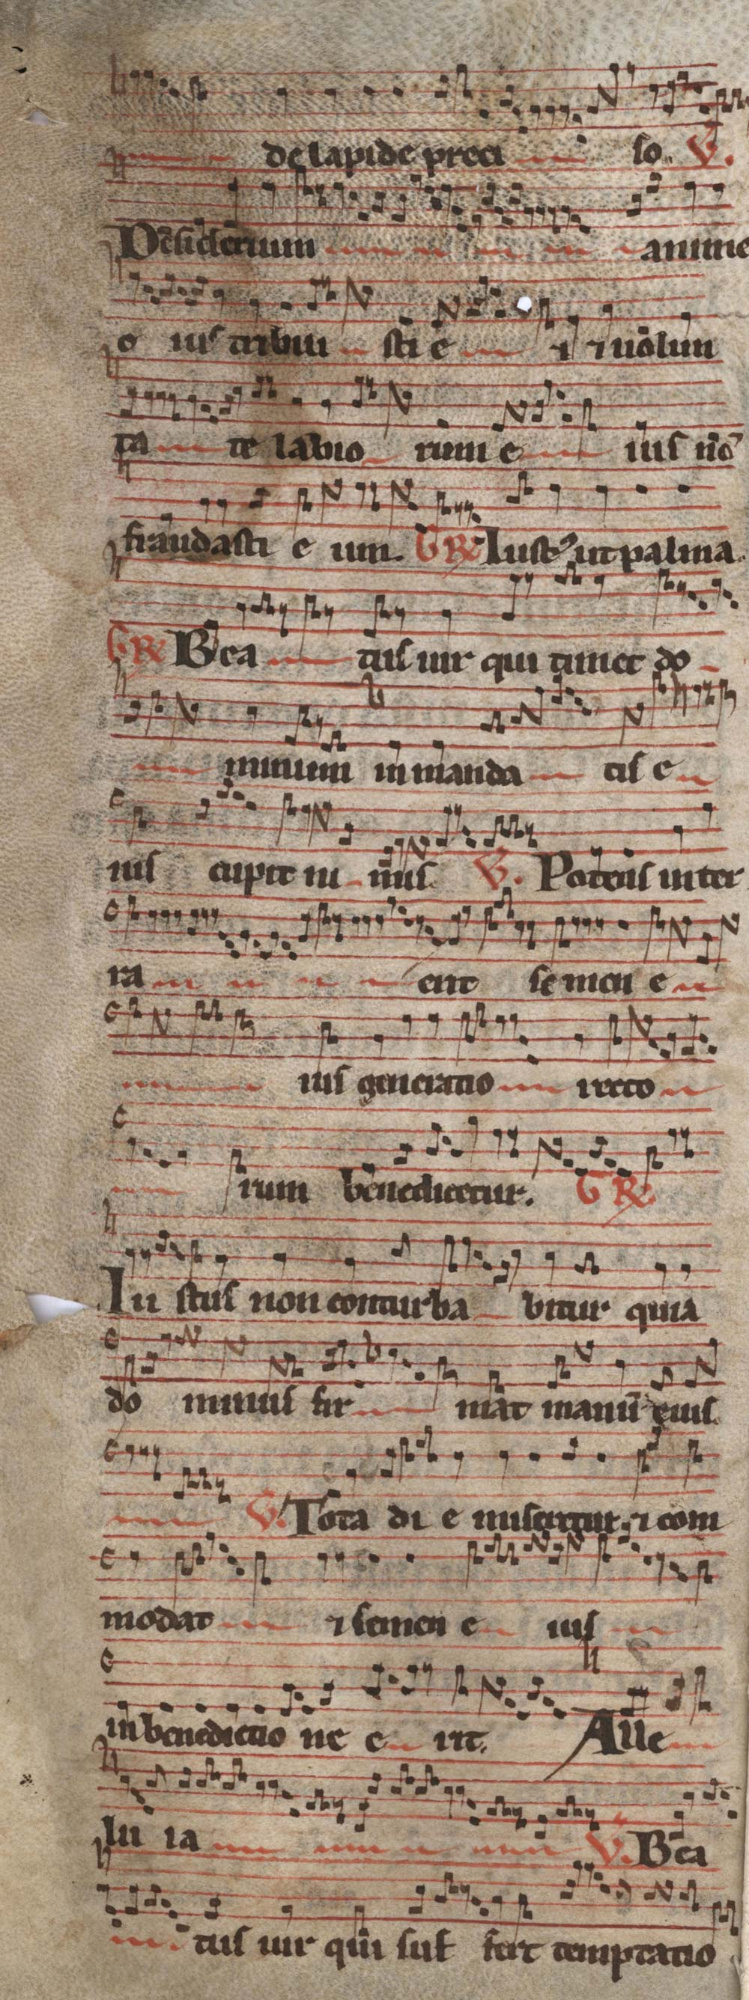 de lapide preci so. V.
Desiderium anime
e ius tribui sti e i ⁊ uolun
ta te labio rum e ius nō
fraudasti e um. GR Iustꝰ ut palma.
GR Bea tus uir qui timet do
minum in manda tis e
ius cupit ni mis. V. Potens in ter
ra erit se men e
ius generatio recto
rum benedicetur. GR
Iu stus non conturba bitur quia
do minus fir mat manū eius
V. Tota di e miseretur. ⁊ com
modat ⁊ semen e ius
in benedictio ne e rit. Alle
lu ia V. Bea
tus uir qui suf fert temptatio